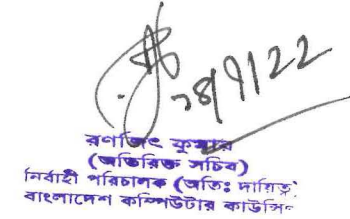 ২৪/৭/22
রণজিৎ কুমার
(অতিরিক্ত সচিব)
নির্বাহী পরিচালক (অতিঃ দায়িত্ব)
বাংলাদেশ কম্পিউটার কাউন্সিল